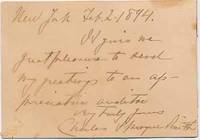 New York Feb. 2. 1894.
It gives me
great pleasure to send
my greetings to an ap-
preciative auditor
Very truly yours
Charles Sprague Smith